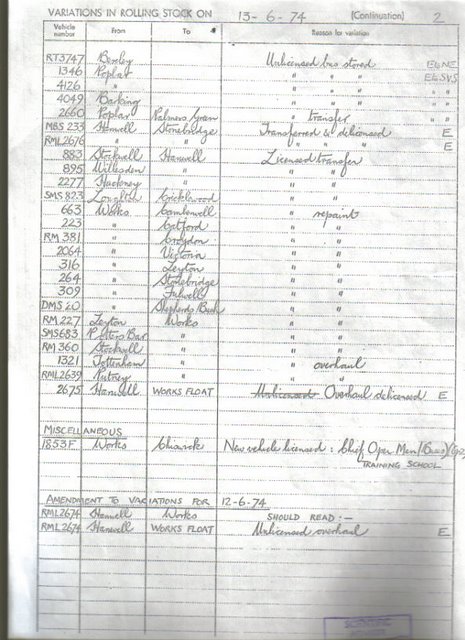 VARIATIONS IN ROLLING STOCK ON 13-6-74 (Continuation) 2
Vehicle number From To Reason for variation
RT3747 Bexley Unlicensed bus stored E&NE
1346 Poplar " " " E&SVS
4126 " " " " " "
4049 Barking " " " " "
2660 Poplar Palmers Grn " transfer
MBS 233 Hanwell Stonebridge Transferred & delicensed E
RML2676 " " " " " E
883 Stockwell Hanwell Licensed transfer
895 Willesden " " "
2277 Hackney " " "
SMS 823 Loughton Cricklewood " "
663 Works Camberwell " repaint
223 " Catford " "
RM 381 " Croydon " "
2064 " Victoria " "
316 " Leyton " "
264 " Stonebridge " "
309 " Fulwell " "
DMS 20 " Shepherds Bush " "
RM 227 Leyton Works " "
SMS683 Potters Bar " " "
RM 360 Stockwell " " "
1321 Tottenham " " overhaul
RML2639 Putney " " "
2675 Hanwell WORKS FLOAT Unlicensed Overhaul delicensed E
MISCELLANEOUS
1853F Works Chiswick New vehicle licensed : Chief Oper. Man (Buses)
TRAINING SCHOOL
AMENDMENT TO VARIATIONS FOR 12-6-74
RML2674 Hanwell Works SHOULD READ :-
RML2674 Hanwell WORKS FLOAT Unlicensed overhaul E